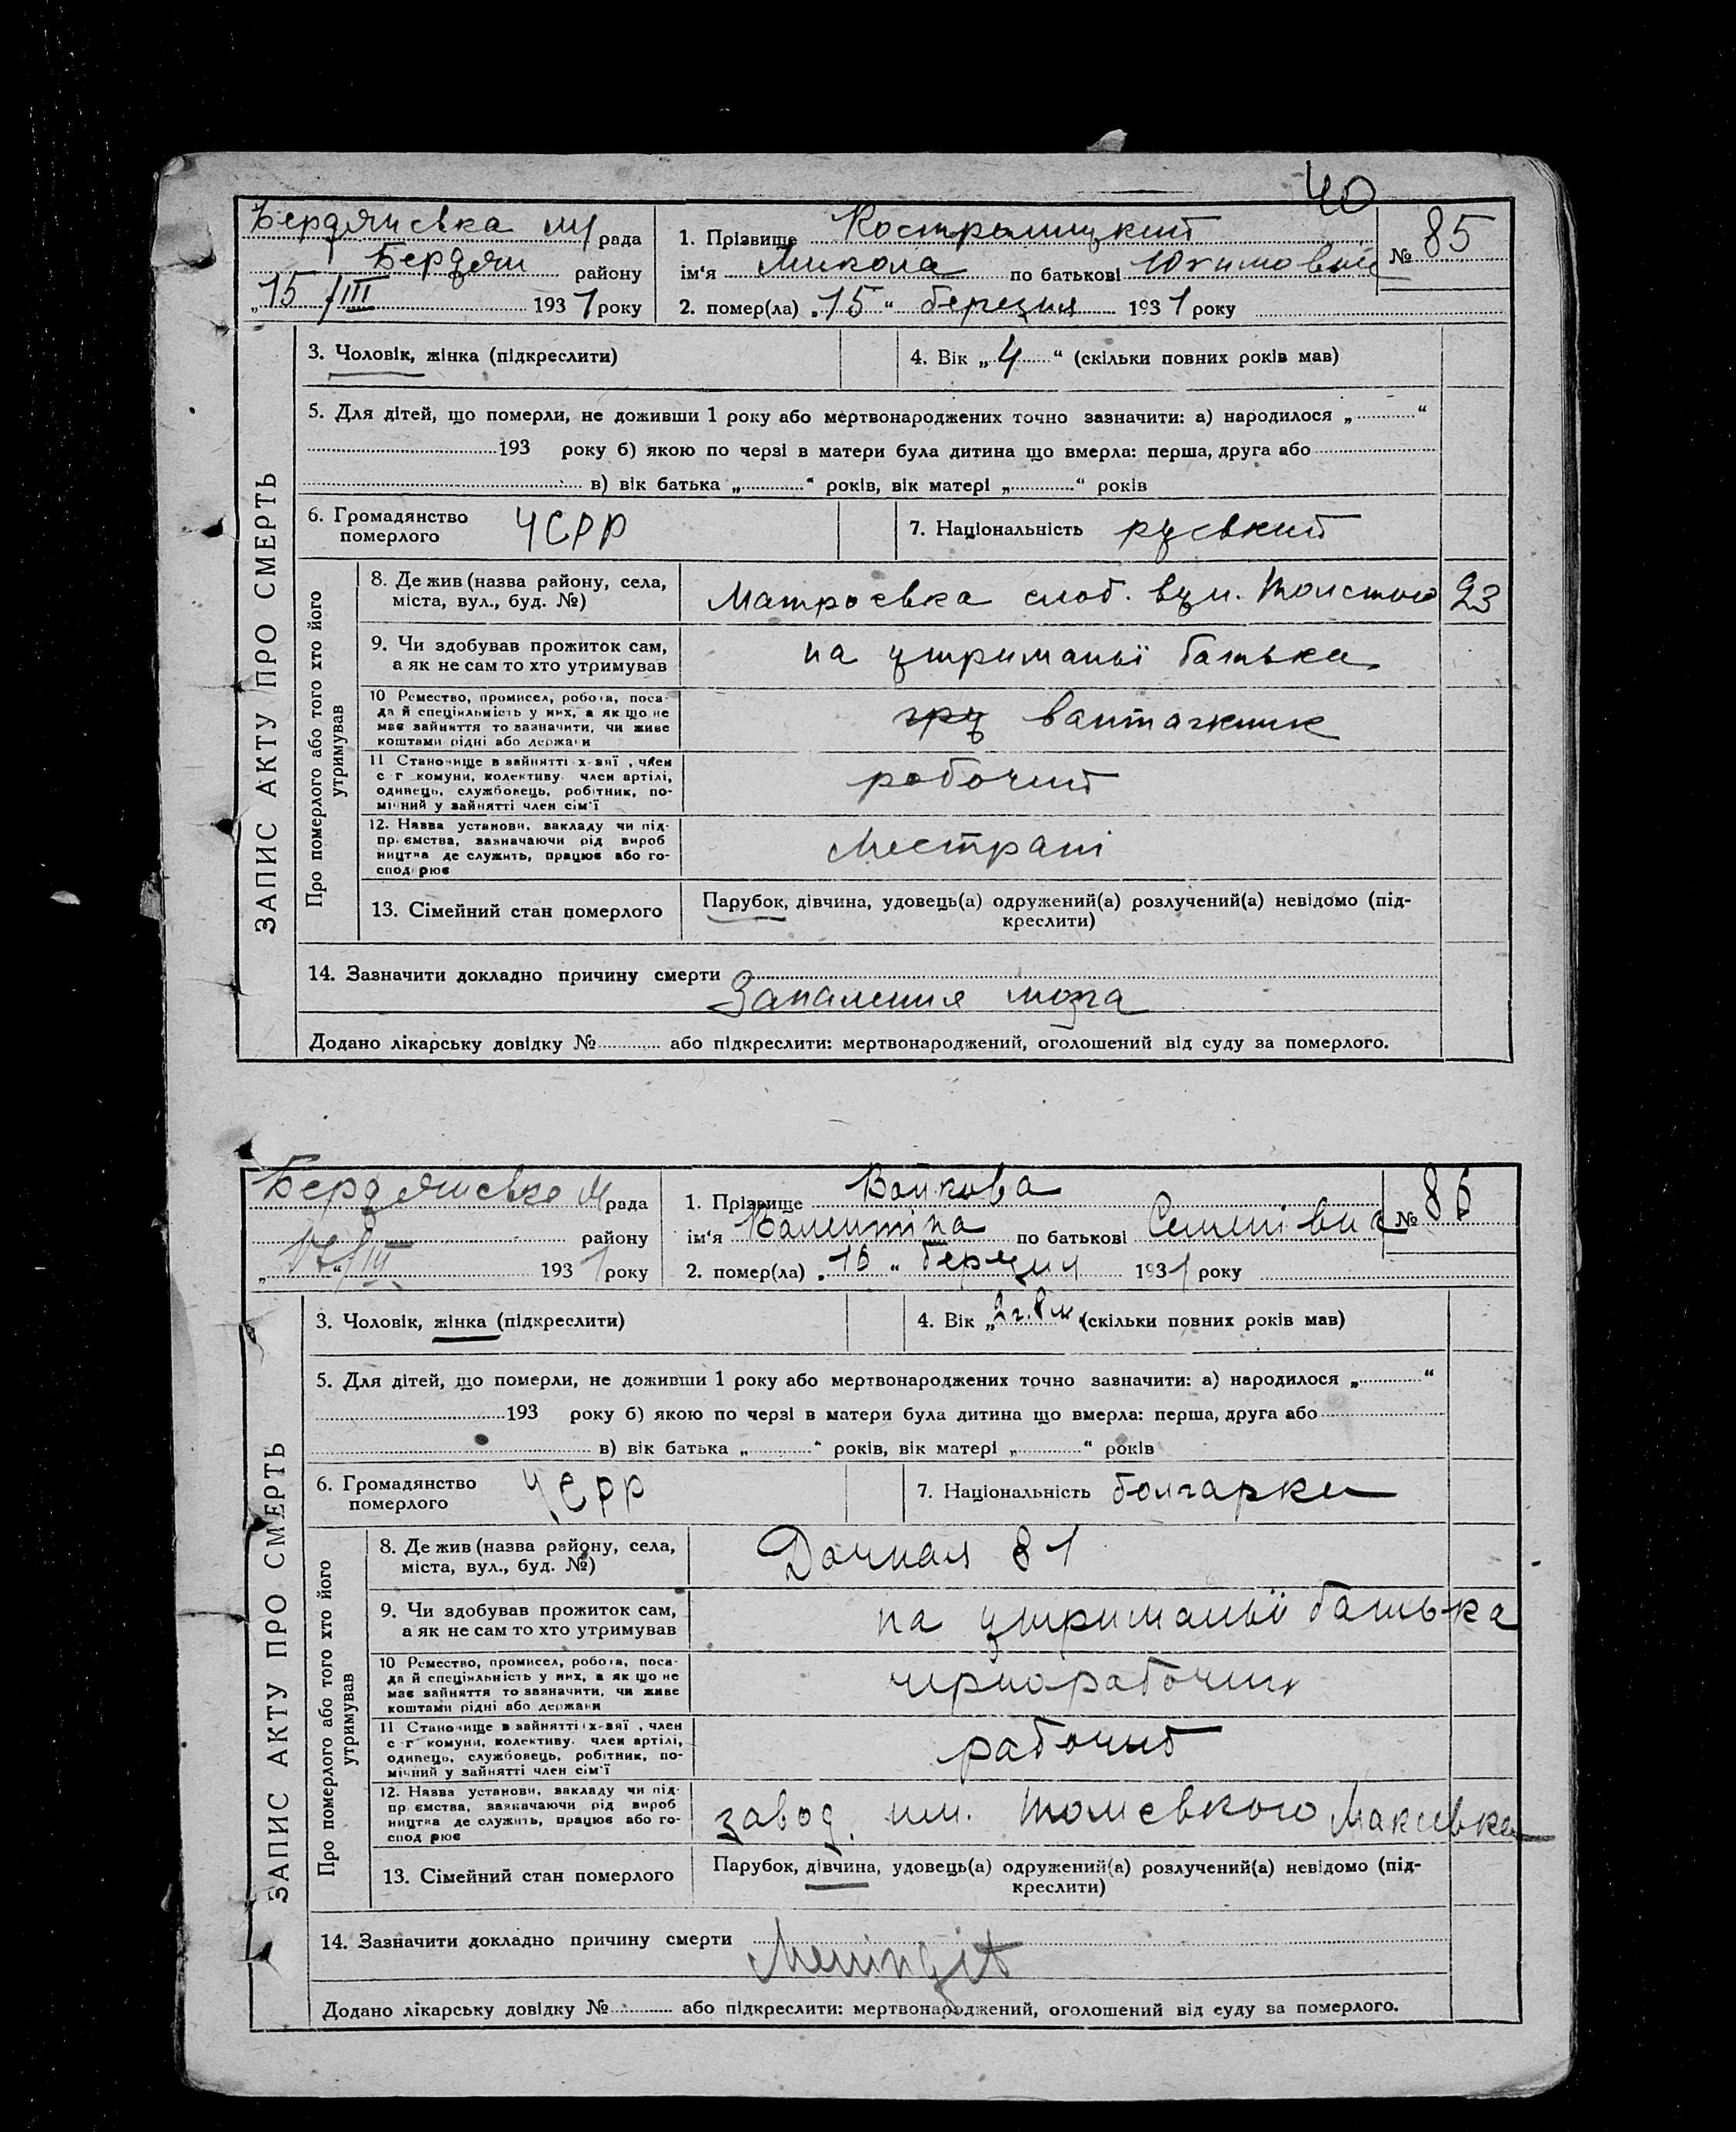 40
Бердянська м/рада
Бердян району
„15/III 1931 року
1. Прізвище Костромицкий
ім'я Микола по батькові Юхимовий
2. помер(ла) „15“ березня 1931 року
№ 85
ЗАПИС АКТУ ПРО СМЕРТЬ
3. Чоловік, жінка (підкреслити)
4. Вік „4“ (скільки повних років мав)
5. Для дітей, що померли, не доживши 1 року або мертвонароджених точно зазначити: а) народилося „ “
193 року б) якою по черзі в матери була дитина що вмерла: перша, друга або
в) вік батька „ “ років, вік матері „ “ років
6. Громадянство
померлого
УСРР
7. Національність руський
Про померлого або того хто його
утримував
8. Де жив (назва району, села,
міста, вул., буд. №)
Матросвка слоб. вул. Толстого 23
9. Чи здобував прожиток сам,
а як не сам то хто утримував
на утриманьї батька
10 Ремество, промисел, робота, поса-
да й спеціяльність у них, а як що не
має зайняття то зазначити, чи живе
коштами рідні або держави
гру вантажник
11 Становище в зайнятті х-зяї , член
с г комуни, колективу. член артілі,
одинець, службовець, робітник, по-
мічний у зайнятті член сім'ї
робочий
12. Назва установи, закладу чи під-
пр ємства, зазначаючи рід вироб
ництва де служить, працює або го-
сподрює
Местрані
13. Сімейний стан померлого
Парубок, дівчина, удовець(а) одружений(а) розлучений(а) невідомо (під-
креслити)
14. Зазначити докладно причину смерти
Запалення мозга
Додано лікарську довідку № або підкреслити: мертвонароджений, оголошений від суду за померлого.
Бердянська м рада
району
„17/III“ 1931 року
1. Прізвище Волкова
ім'я Валентіна по батькові Семенівна
2. помер(ла) „16“ березня 1931 року
№ 86
ЗАПИС АКТУ ПРО СМЕРТЬ
3. Чоловік, жінка (підкреслити)
4. Вік „2 г. 8 м. (скільки повних років мав)
5. Для дітей, що померли, не доживши 1 року або мертвонароджених точно зазначити: а) народилося „ “
193 року б) якою по черзі в матери була дитина що вмерла: перша, друга або
в) вік батька „ “ років, вік матері „ “ років
6. Громадянство
померлого
УСРР
7. Національність болгарка
Про померлого або того хто його
утримував
8. Де жив (назва району, села,
міста, вул., буд. №)
Дачная 81
9. Чи здобував прожиток сам,
а як не сам то хто утримував
на утриманьї батька
10 Ремество, промисел, робота, поса-
да й спеціяльність у них, а як що не
має зайняття то зазначити, чи живе
коштами рідні або держави
чернорабочих
11 Становище в зайнятті х-зяї , член
с г комуни, колективу. член артілі,
одинець, службовець, робітник, по-
мічний у зайнятті член сім'ї
рабочий
12. Назва установи, закладу чи під-
пр ємства, зазначаючи рід вироб
ництва де служить, працює або го-
спод рює
завод. им. Томського Макіївка
13. Сімейний стан померлого
Парубок, дівчина, удовець(а) одружений(а) розлучений(а) невідомо (під-
креслити)
14. Зазначити докладно причину смерти
Meningit
Додано лікарську довідку № або підкреслити: мертвонароджений, оголошений від суду за померлого.